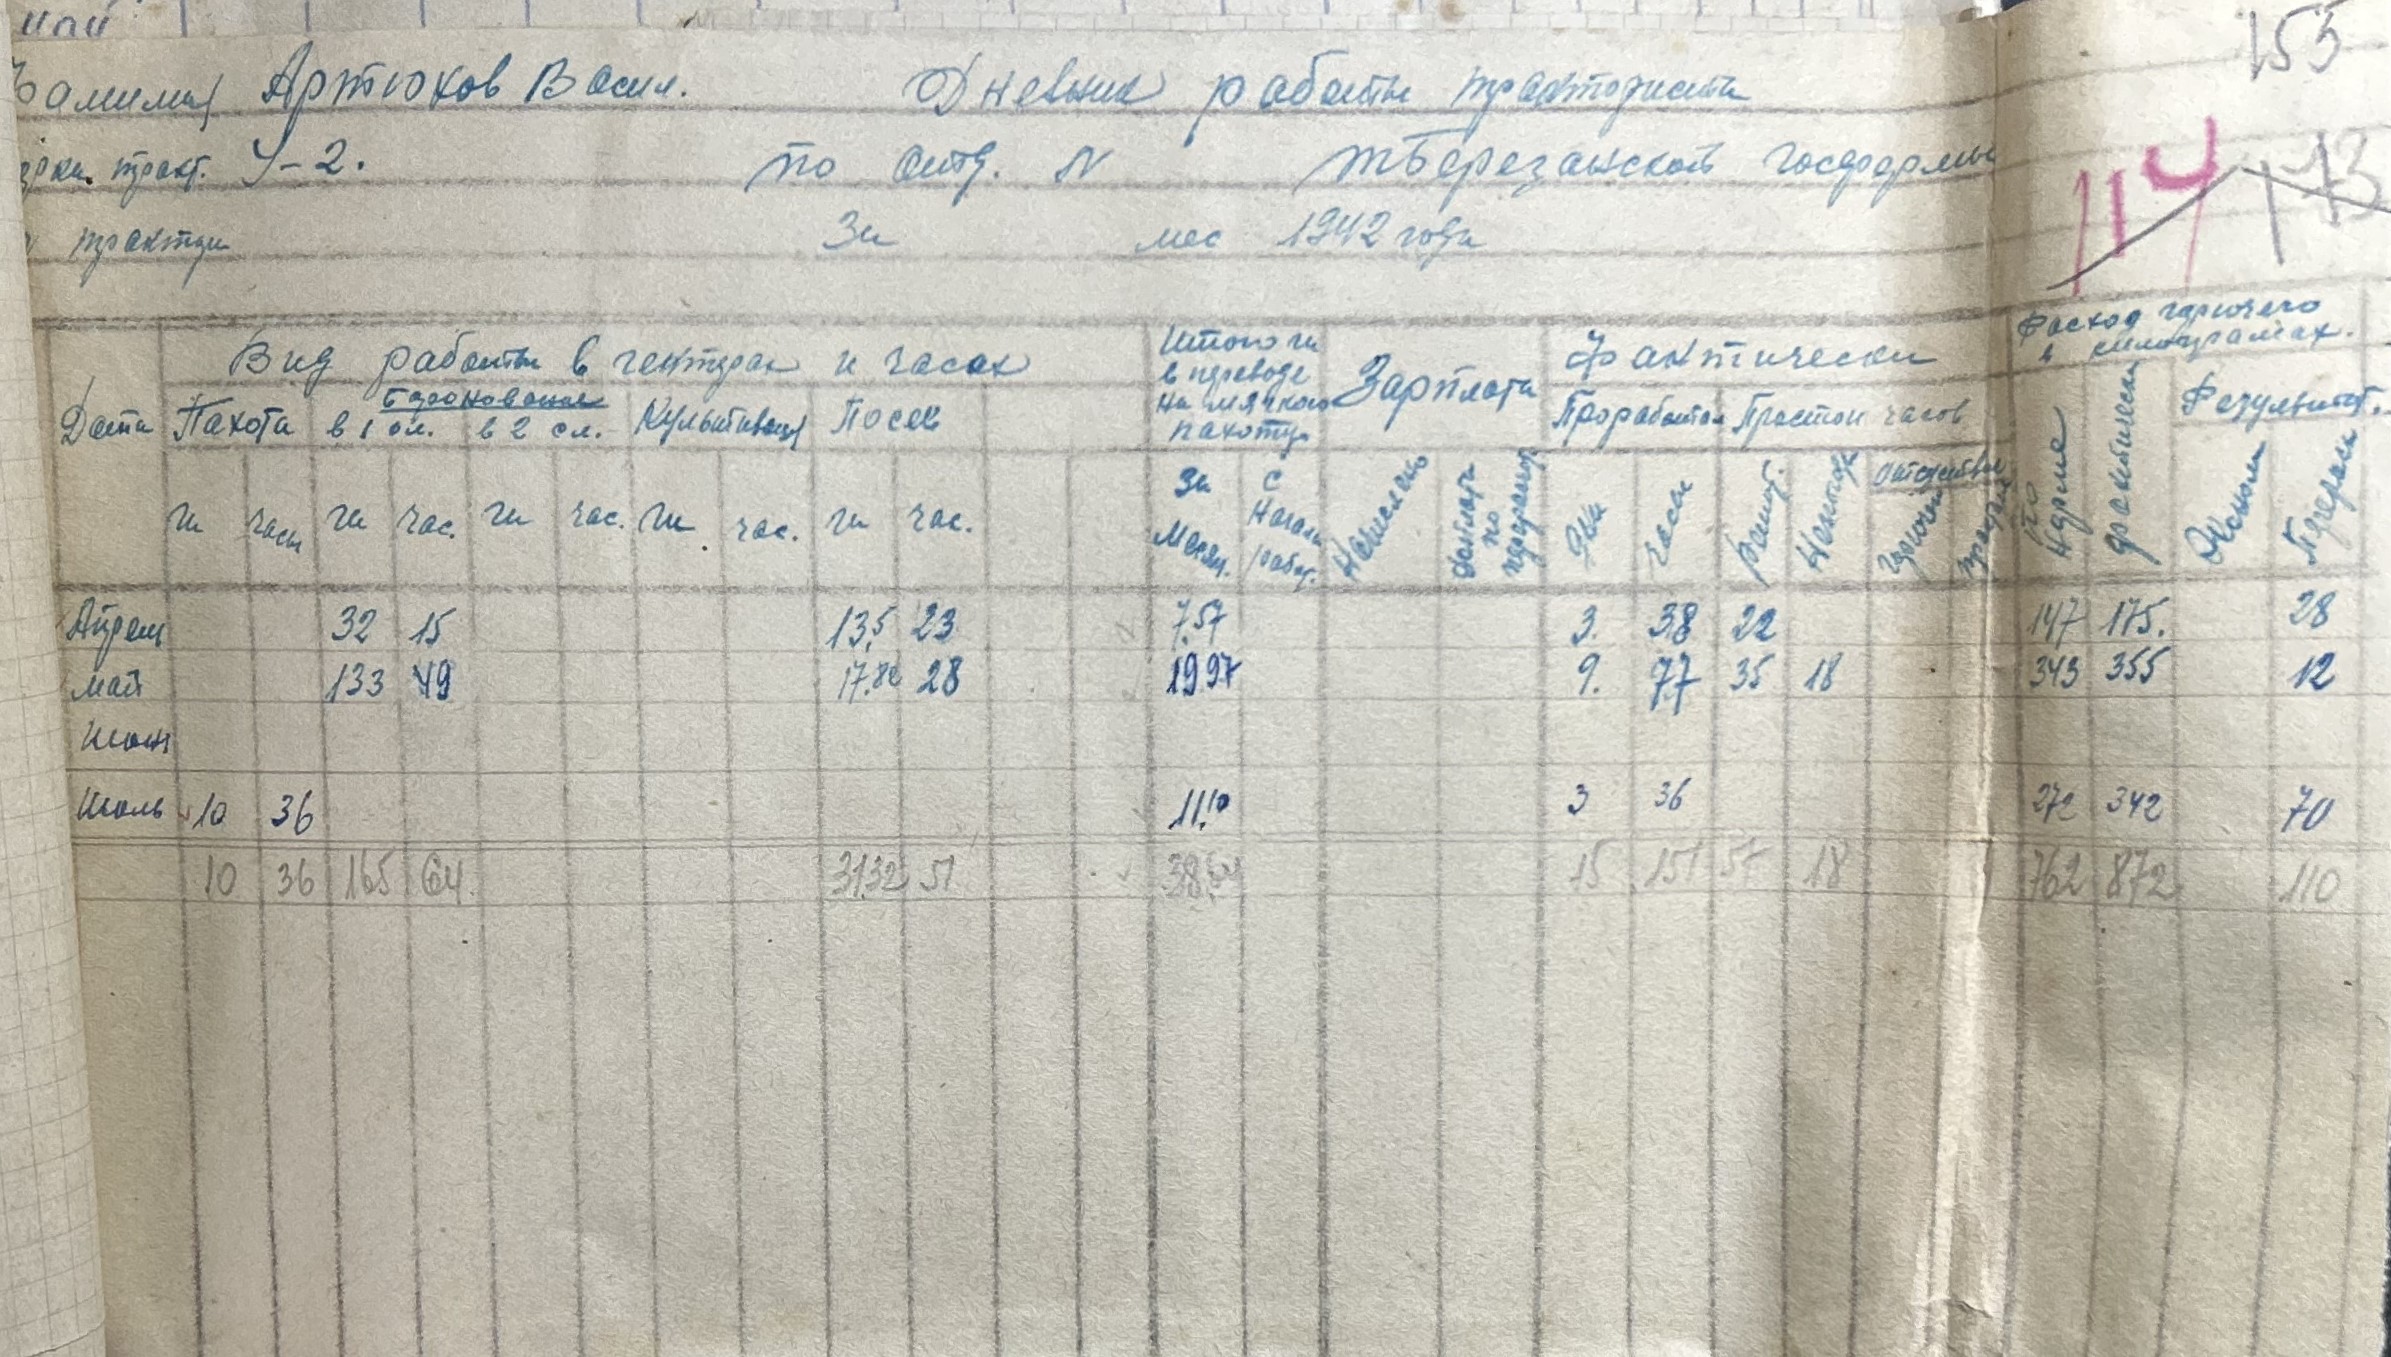 май
Фамилия Артюхов Васил. Дневник работы тракториста 153
марки тракт. У-2. по отд. N тБерезанской госфермы 114 113
трактра За мес 1942 года
Дата Вид работы в гектарах и часах Итого га в переводе на мягкую пахоту Зарплата Фактически Расход горючего в килограмах.
Пахота Боронование в 1 сл. в 2 сл. Культивац Посев Проработал Простои часов По норме фактически Результат.
га часы га час. га час. га час. га час. За месяц. С Начала работ. Начислено дни часы Ремонт. Отсутствие горючего Эконом Перерасх
Апрель 32 15 13,5 23 7.57 3. 38 22 147 175. 28
май 133 49 17.82 28 19 97 9. 77 35 18 343 355 12
Июнь
Июль 10 36 11.10 3 36 272 342 70
10 36 165 64. 31.32 51 38.64 15 151 57 18 762 872 110